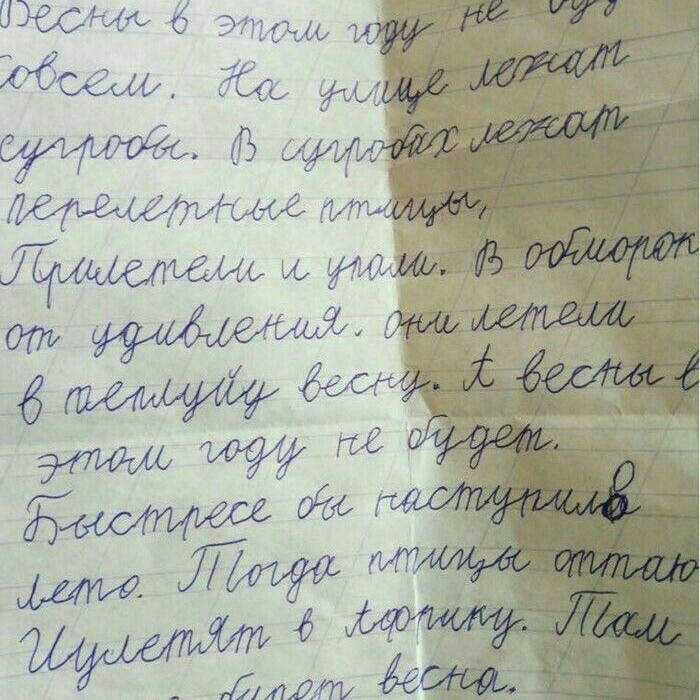 Весны в этом году не буд
совсем. На улице лежат
сугробы. В сугробах лежат
перелетные птицы,
Прилетели и упали. В обморок
от удивления. они летели
в теплуйу весну. А весны в
этом году не будет.
Быстресе бы наступило
лето. Тогда птицы оттаю
Иулетят в Африку. Там
будет весна.